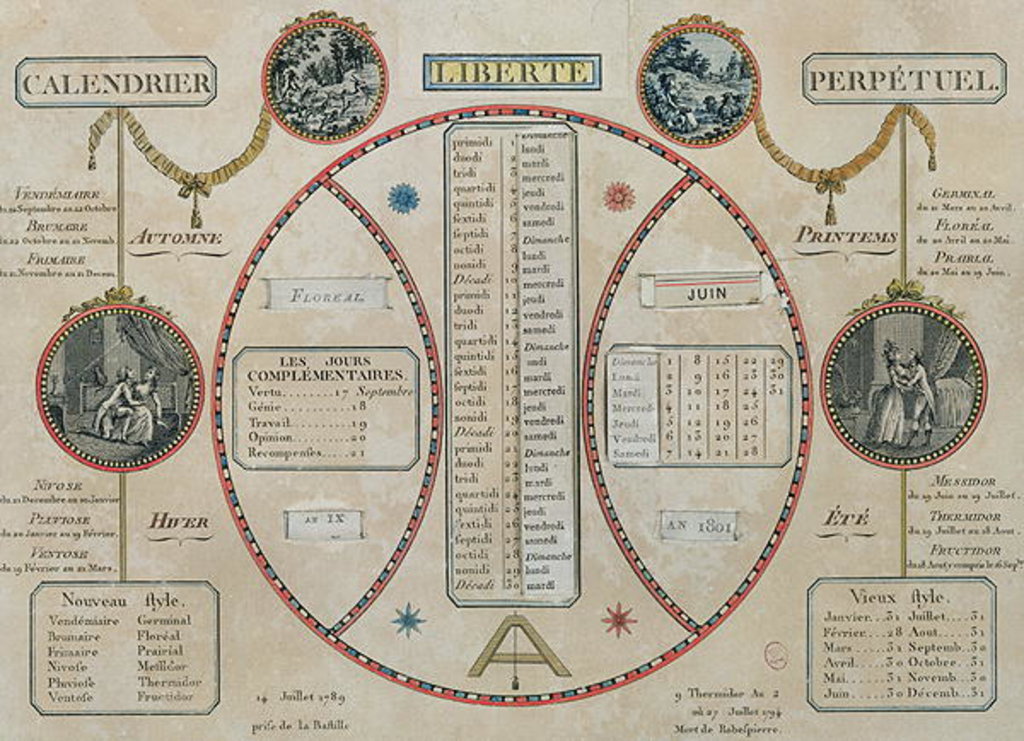 CALENDRIER
LIBERTE
PERPÉTUEL.
VENDÉMIAIRE
du 22 Septembre au 22 Octobre
BRUMAIRE
du 22 Octobre au 21 Novemb.
FRIMAIRE
du 21 Novembre au 21 Decem.
AUTOMNE
FLOREAL
LES JOURS
COMPLÉMENTAIRES.
Vertu........17 Septembre
Génie..........18
Travail.........19
Opinion........20
Recompenses.....21
AN IX
NIVOSE
du 21 Decembre au 20 Janvier
PLUVIOSE
du 20 Janvier au 19 Février.
VENTOSE
du 19 Février au 21 Mars.
HIVER
Nouveau style.
Vendémiaire Germinal
Brumaire Floréal
Frimaire Prairial
Nivose Messidor
Pluviose Thermidor
Ventose Fructidor
primidi 1 Dimanche
duodi 2 lundi
tridi 3 mardi
quartidi 4 mercredi
quintidi 5 jeudi
sextidi 6 vendredi
septidi 7 samedi
octidi 8 Dimanche
nonidi 9 lundi
Décadi 10 mardi
primidi 11 mercredi
duodi 12 jeudi
tridi 13 vendredi
quartidi 14 samedi
quintidi 15 Dimanche
sextidi 16 lundi
septidi 17 mardi
octidi 18 mercredi
nonidi 19 jeudi
Décadi 20 vendredi
primidi 21 samedi
duodi 22 Dimanche
tridi 23 lundi
quartidi 24 mardi
quintidi 25 mercredi
sextidi 26 jeudi
septidi 27 vendredi
octidi 28 samedi
nonidi 29 Dimanche
Décadi 30 lundi
mardi
A
JUIN
Dimanche 1 8 15 22 29
Lundi 2 9 16 23 30
Mardi 3 10 17 24 31
Mercred. 4 11 18 25
Jeudi 5 12 19 26
Vendredi 6 13 20 27
Samedi 7 14 21 28
AN 1801
PRINTEMS
GERMINAL
du 21 Mars au 20 Avril.
FLORÉAL
du 20 Avril au 20 Mai.
PRAIRIAL
du 20 Mai au 19 Juin.
ÉTÉ
MESSIDOR
du 19 Juin au 19 Juillet.
THERMIDOR
du 19 Juillet au 18 Aout.
FRUCTIDOR
du 18 Aout y compris le 16 Sepbre
Vieux style.
Janvier...31 Juillet....31
Février...28 Aout.....31
Mars.....31 Septemb..30
Avril.....30 Octobre..31
Mai......31 Novemb..30
Juin.....30 Décemb..31
14 Juillet 1789
prise de la Bastille
9 Thermidor An 2
ou 27 Juillet 1794
Mort de Robespierre.